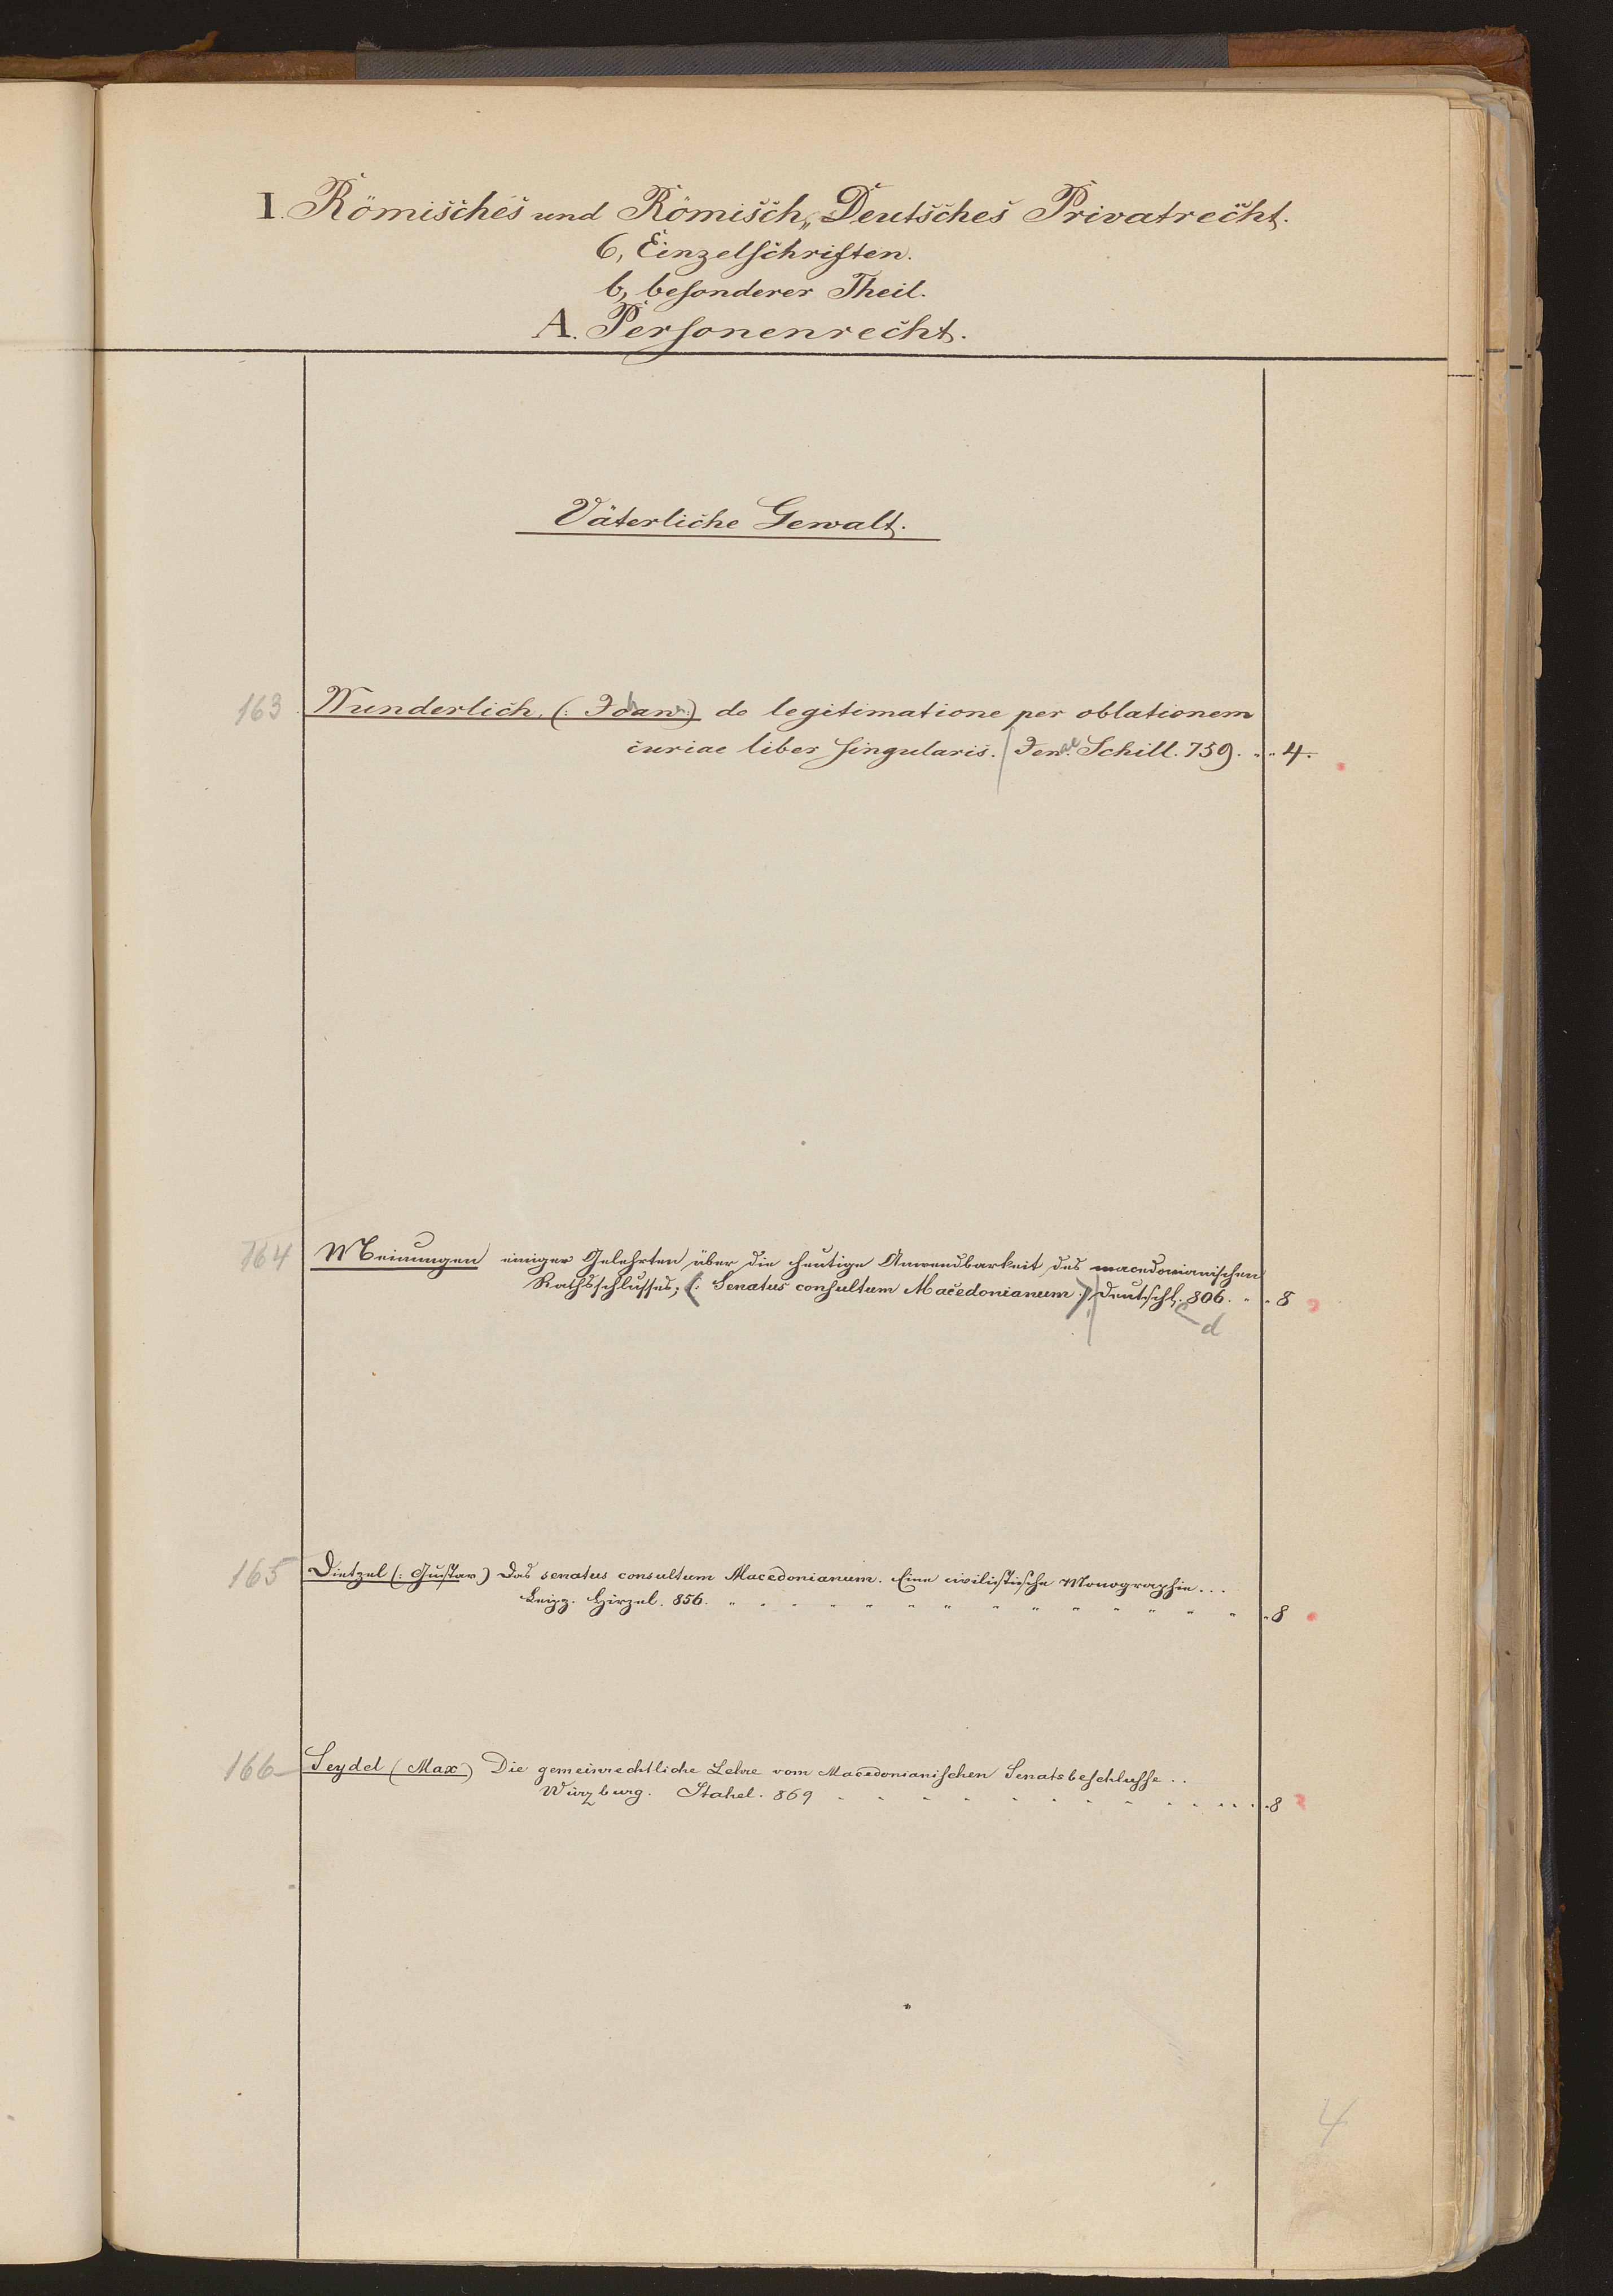 I. Römisches und Römisch, Deutsches Privatrecht.
6, Einzelschriften.
b, besonderer Theil.
A. Personenrecht.
Väterliche Gewalt.
163 Wunderlich. (: Johann :) de legitimatione per oblationem
curiae liber singularis. Jenae Schill. 759. 4.
164 Meinungen einiger Gelehrten über die heutige Anwendbarkeit des macedonianischen
Rathsschlusses; (: Senatus consultum Macedonianum :) Deutschl. 806. 8
d
165 Dietzel (: Gustav) Das senatus consultum Macedonianum. Eine civilistische Monographie...
Leipz. Hirzel. 856. 8
166 Seydel (Max) Die gemeinrechtliche Lehre vom Macedonianischen Senatsbeschlusse..
Würzburg. Stahel. 869 8
4